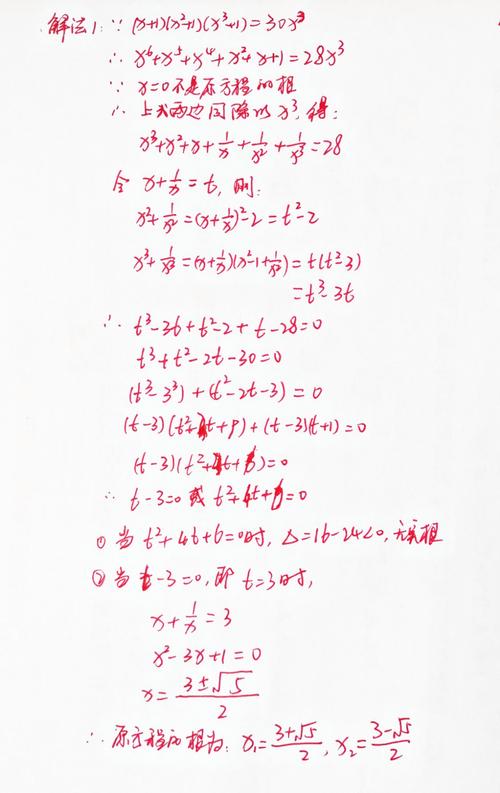 解法1: ∵ (x+1)(x²+1)(x³+1)=30x³
∴ x⁶+x⁵+x⁴+x²+x+1=28x³
∵ x=0不是原方程的根
∴ 上式两边同除以x³, 得:
x³+x²+x+1/x+1/x²+1/x³=28
令 x+1/x=t, 则:
x²+1/x²=(x+1/x)²-2=t²-2
x³+1/x³=(x+1/x)(x²-1+1/x²)=t(t²-3)
=t³-3t
∴ t³-3t+t²-2+t-28=0
t³+t²-2t-30=0
(t³-3³)+(t²-2t-3)=0
(t-3)(t²+t+9)+(t-3)(t+1)=0
(t-3)(t²+4t+6)=0
∴ t-3=0 或 t²+4t+6=0
① 当 t²+4t+6=0时, Δ=16-24<0, 无实根
② 当 t-3=0, 即 t=3时,
x+1/x=3
x²-3x+1=0
x=(3±√5)/2
∴ 原方程的根为: x₁=(3+√5)/2, x₂=(3-√5)/2